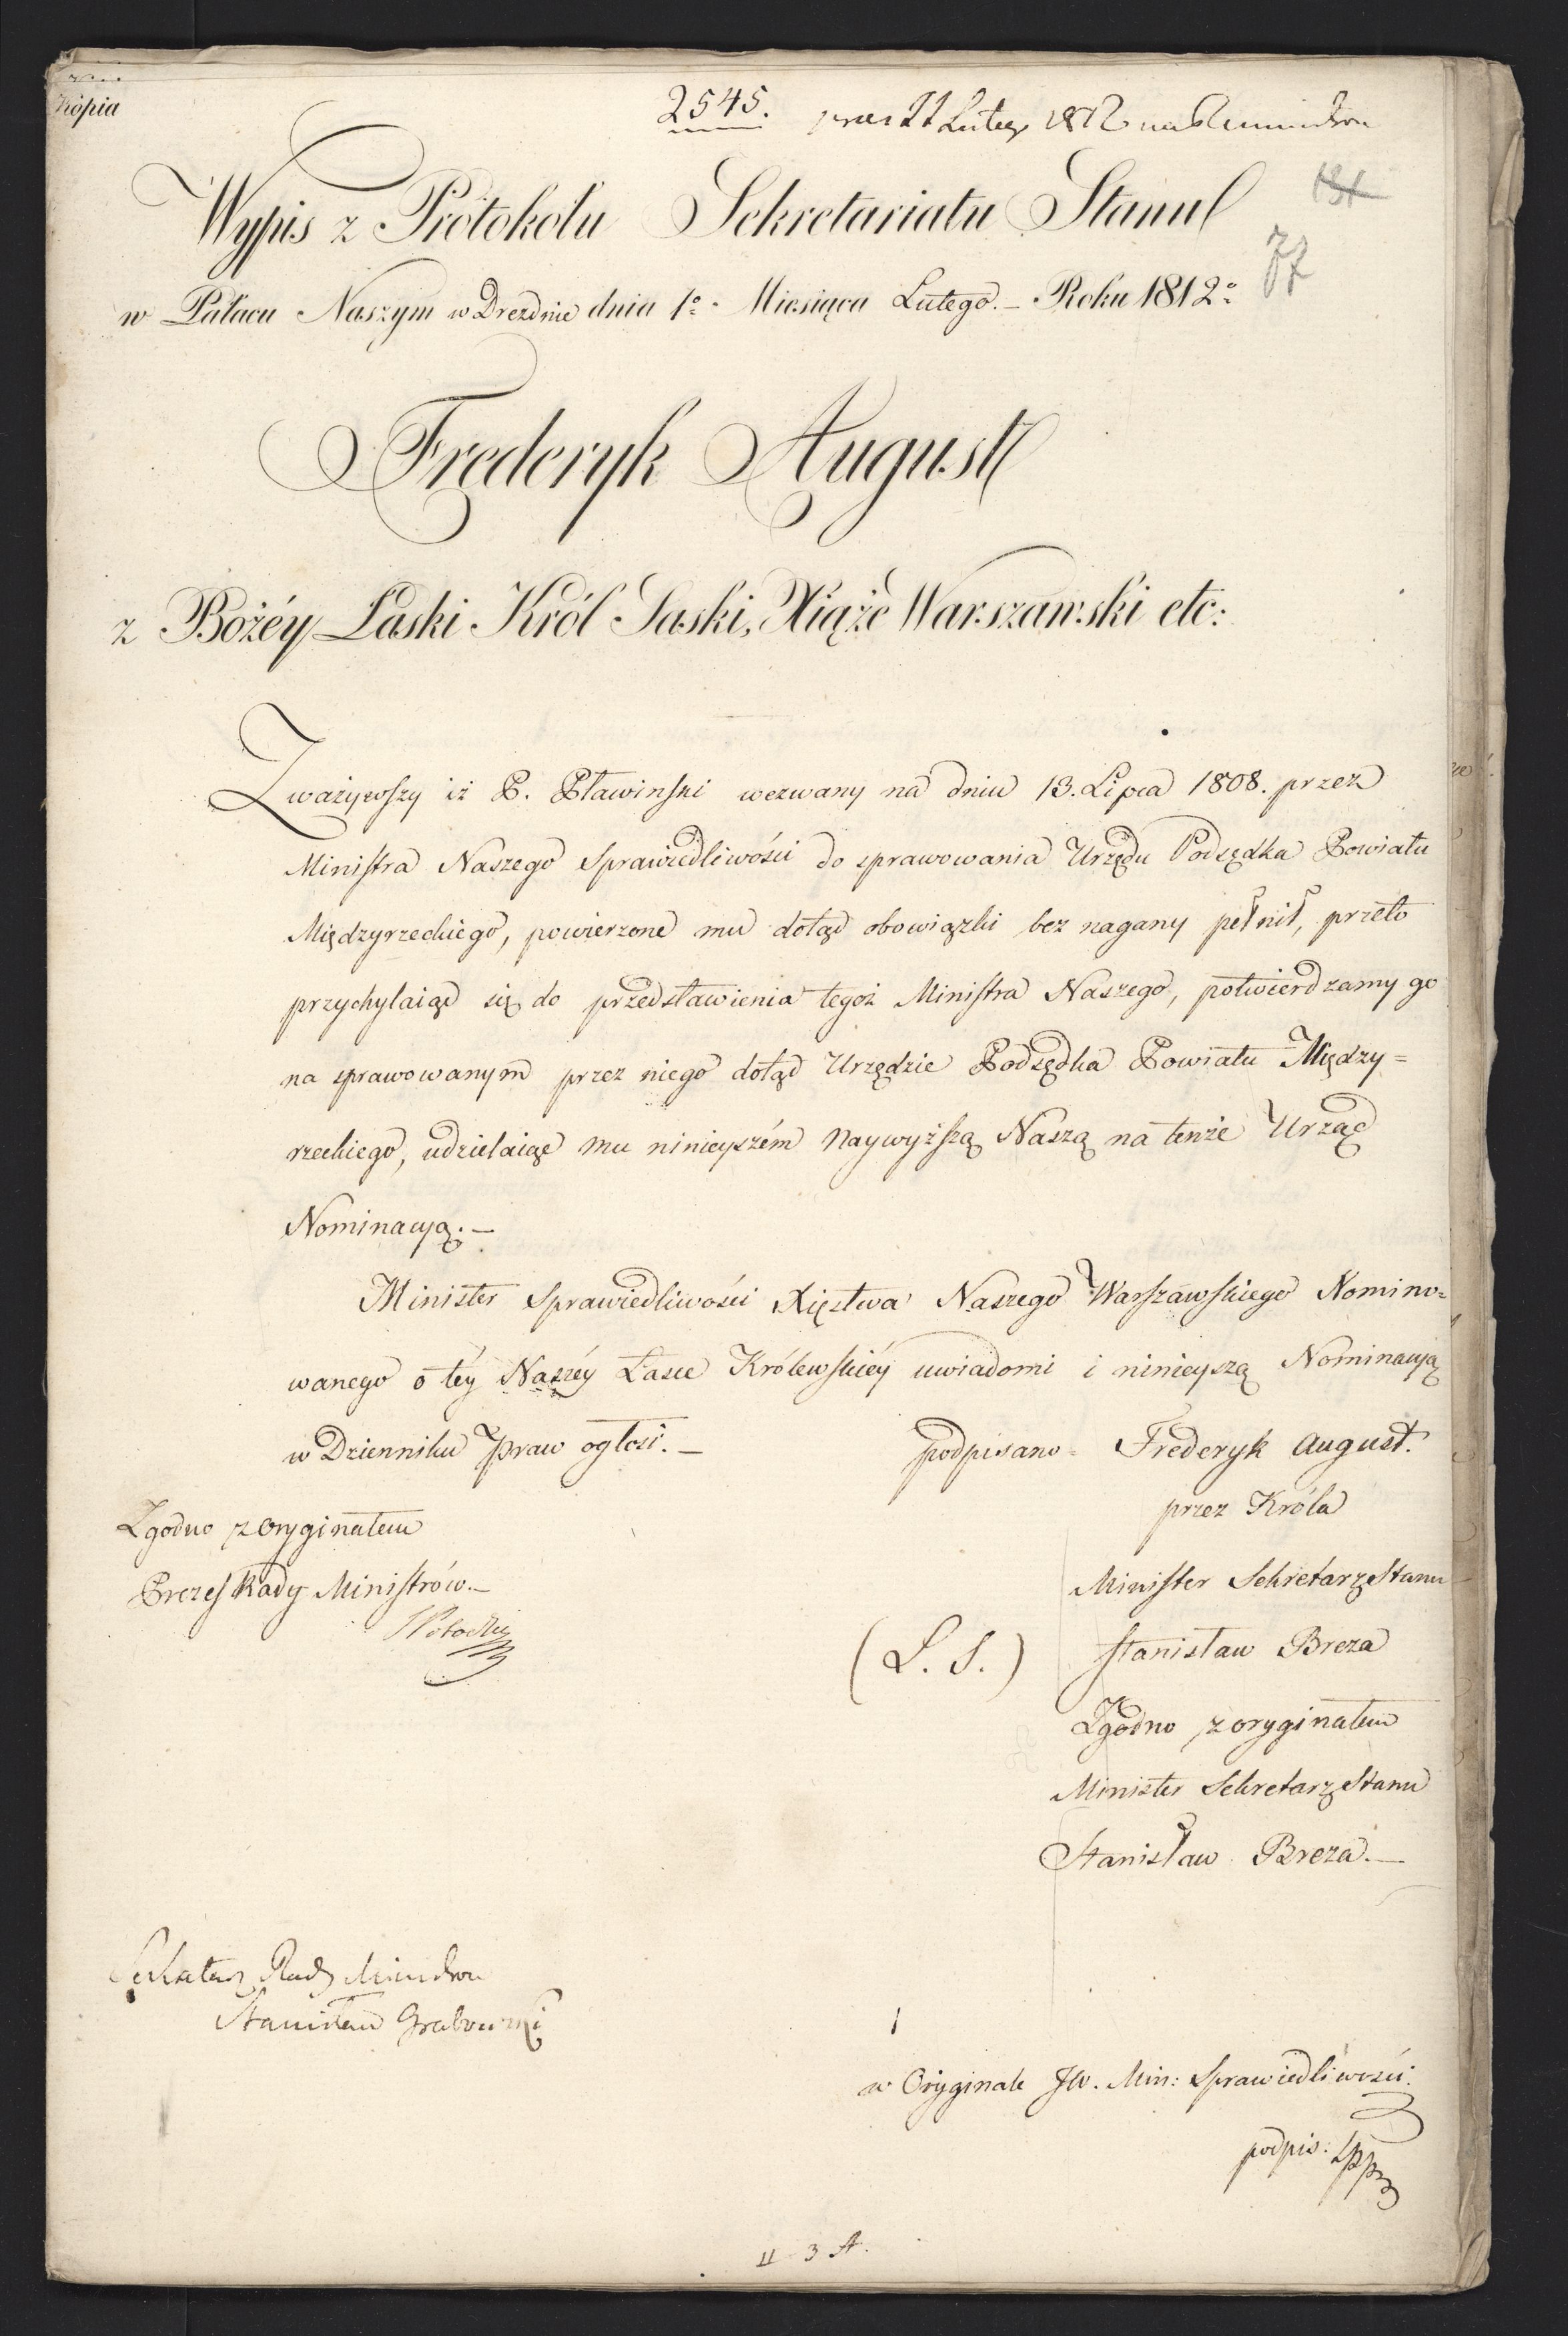 Kopia
2545.
Lutego 1812
131
77
Wypis z Protokołu Sekretariatu Stanu
w Pałacu Naszym w Dreznie dnia 1º. Miesiąca Lutego. – Roku 1812º
Frederyk August
z Bożéy Łaski Król Saski, Xiąże Warszawski etc:
Zważywszy iż P. Pławinski wezwany na dniu 13. Lipca 1808. przez
Ministra Naszego Sprawiedliwości do sprawowania Urzędu Podsędka Powiatu
Międzyrzeckiego, powierzone mu dotąd obowiązki bez nagany pełnił, przeto
przychylaiąc się do przedstawienia tegoż Ministra Naszego, potwierdzamy go
na sprawowanym przez niego dotąd Urzędzie Podsędka Powiatu Między=
rzeckiego, udzielaiąc mu ninieyszém naywyższą Naszą na tenże Urząd
Nominacyą. –
Minister Sprawiedliwości Xięstwa Naszego Warszawskiego Nomino=
wanego o téy Naszéy Łasce Królewskiéy uwiadomi i ninieyszą Nominacyą
w Dzienniku Praw ogłosi. –
podpisano = Frederyk August.
przez Króla
Zgodno z oryginałem
Prezes Rady Ministrów. –
SPotocki
Minister Sekretarz Stanu
(L. S.) Stanisław Breza
Zgodno z oryginałem
Minister Sekretarz Stanu
Stanisław Breza. –
Sekretarz Rady Ministrow
Stanisław Grabowski
w Oryginale JW. Min: Sprawiedliwości:
podpis:
II 3 A.